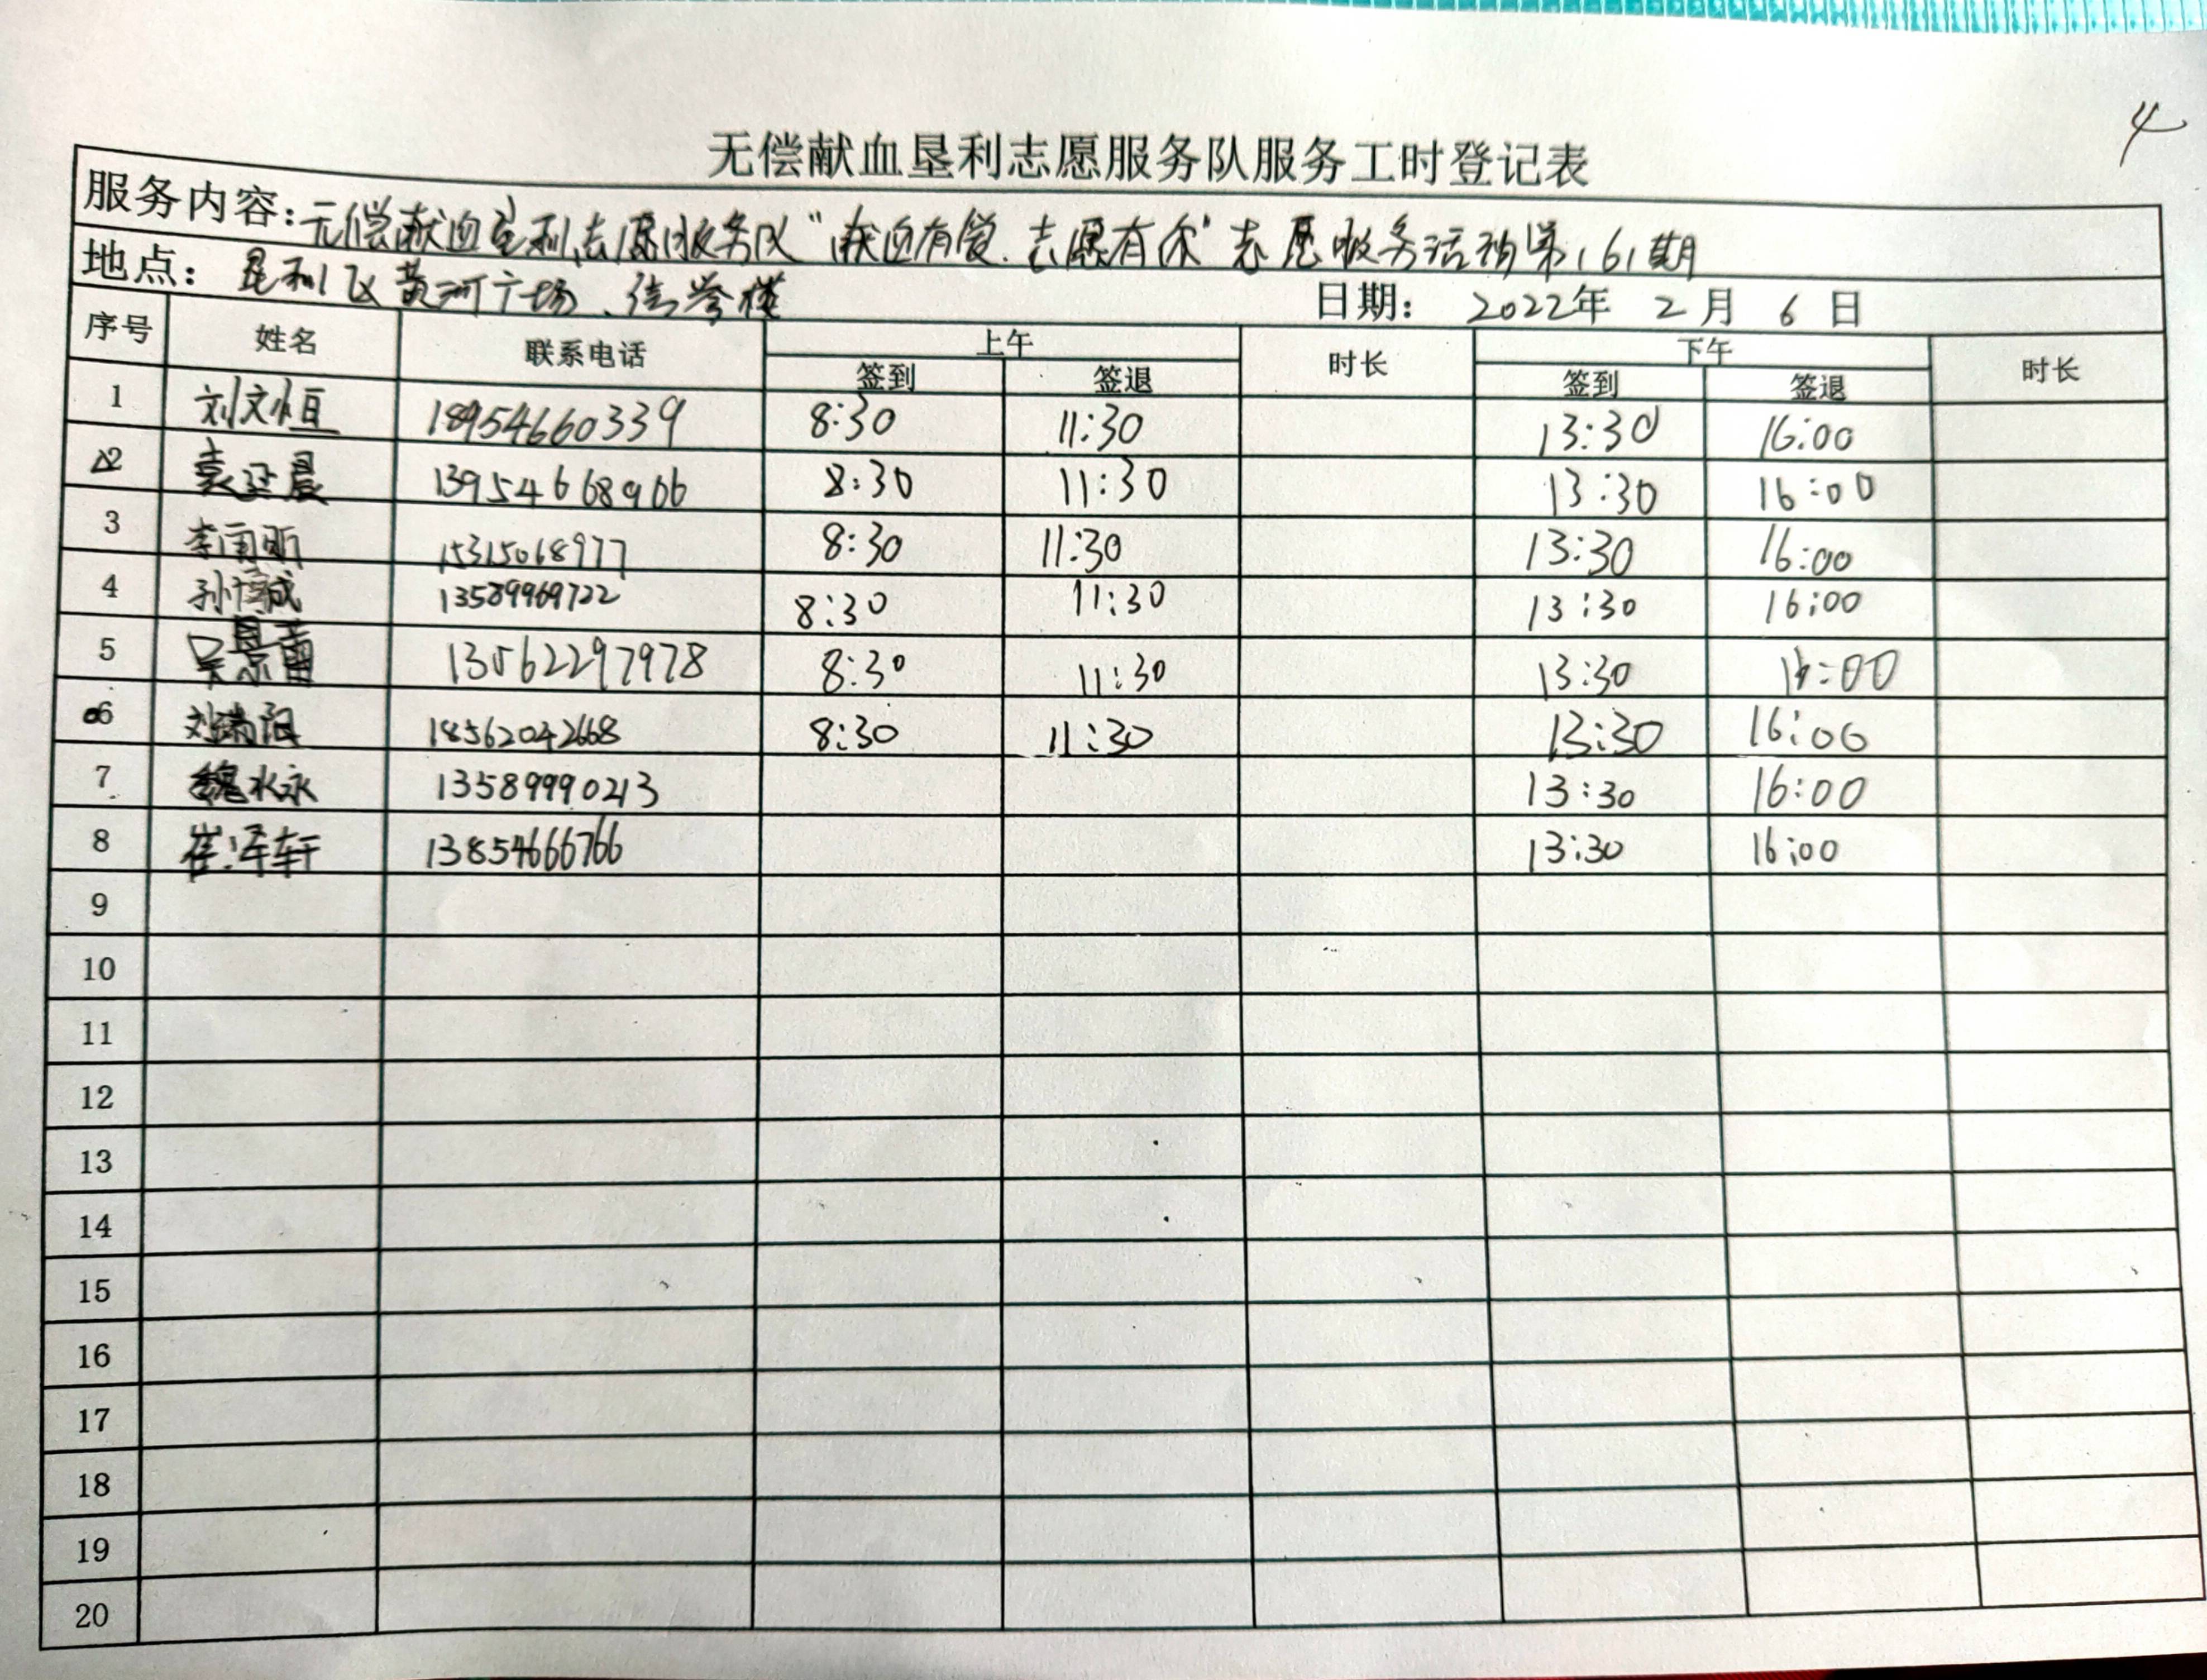 4
无偿献血垦利志愿服务队服务工时登记表
服务内容:无偿献血垦利志愿服务队“献血有爱.志愿有你”志愿服务活动第161期
地点: 垦利区黄河广场、信誉楼 日期: 2022年 2月 6日
序号 姓名 联系电话 上午 时长 下午 时长
签到 签退 签到 签退
1 刘文恒 18954660339 8:30 11:30 13:30 16:00
2 袁延晨 13954668966 8:30 11:30 13:30 16:00
3 李雨昕 15315068977 8:30 11:30 13:30 16:00
4 孙博诚 13589969722 8:30 11:30 13:30 16:00
5 吴景 13562297978 8:30 11:30 13:30 16:00
6 刘瑞阳 18562042668 8:30 11:30 13:30 16:00
7 魏水永 13589990213 13:30 16:00
8 崔泽轩 13854666766 13:30 16:00
9
10
11
12
13
14
15
16
17
18
19
20